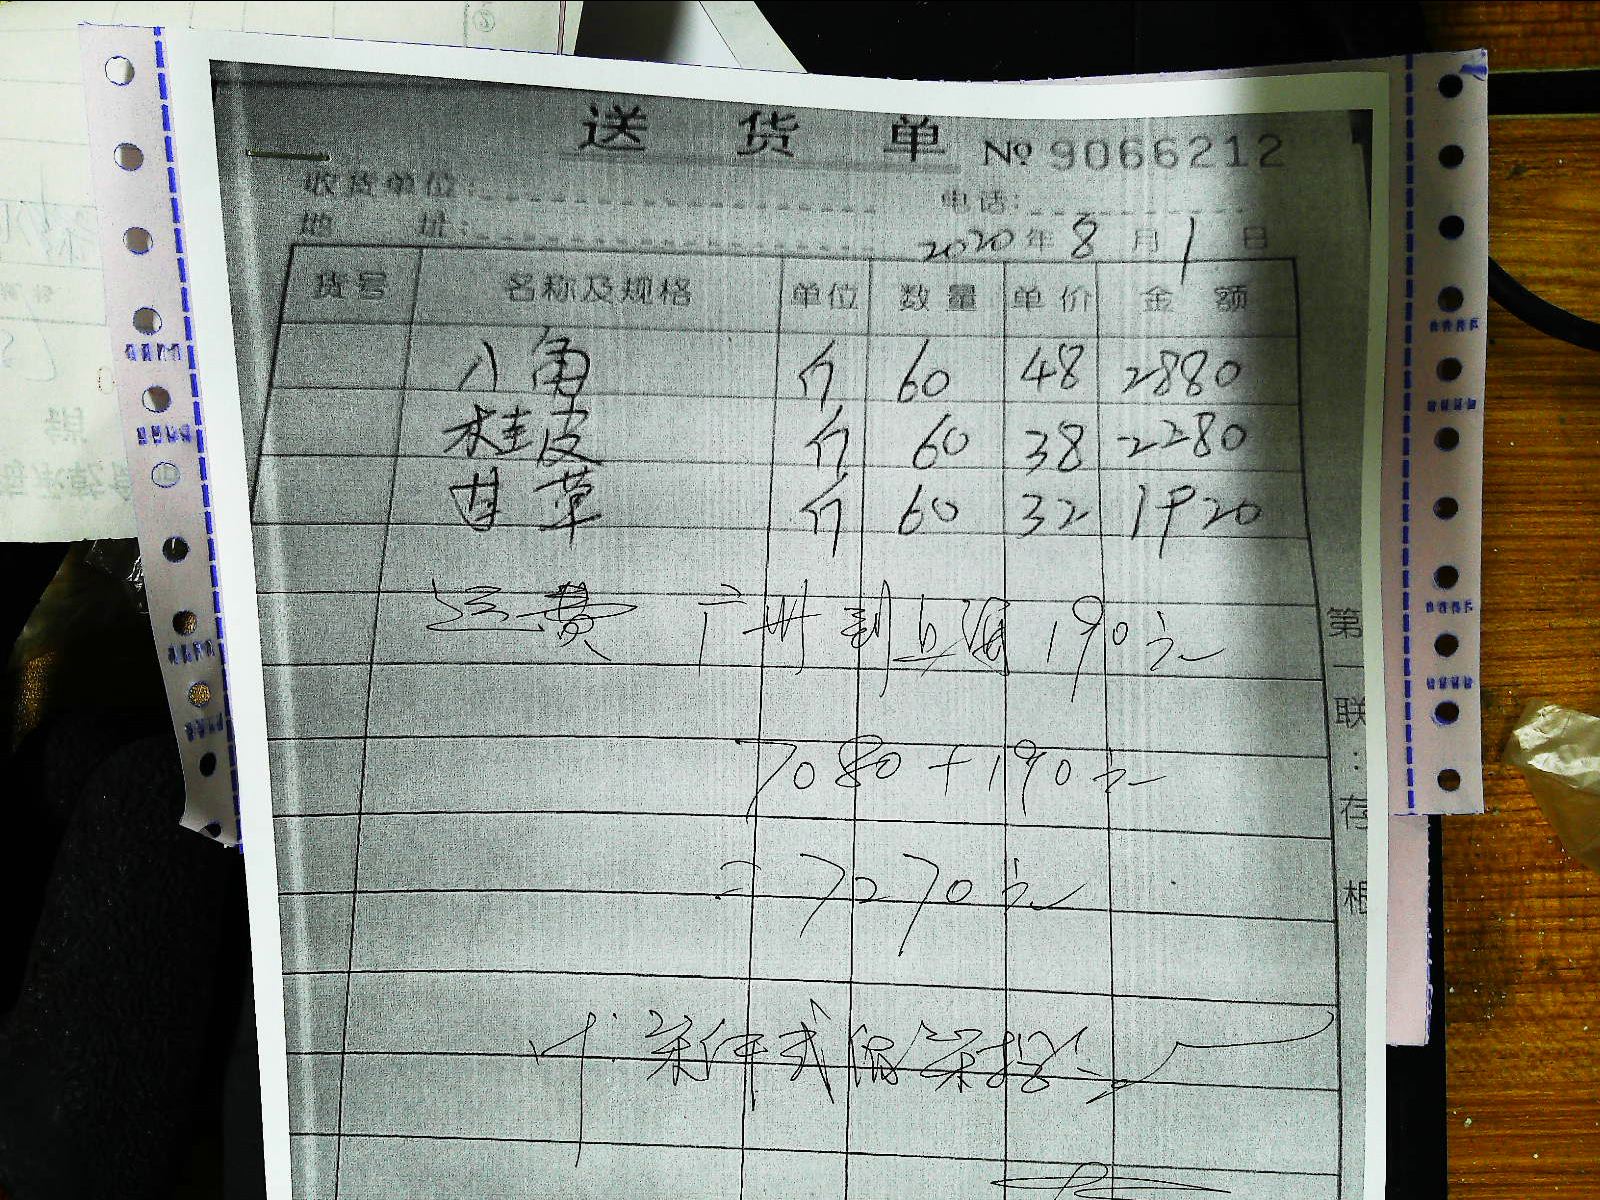 送 货 单 № 9066212
收货单位：
电话：
地 址：
2020年8月1日
货号 名称及规格 单位 数量 单价 金额
八角 斤 60 48 2880
桂皮 斤 60 38 2280
甘草 斤 60 32 1920
运费 广州到 190元
7080+190元
=7270元
第一联：存根